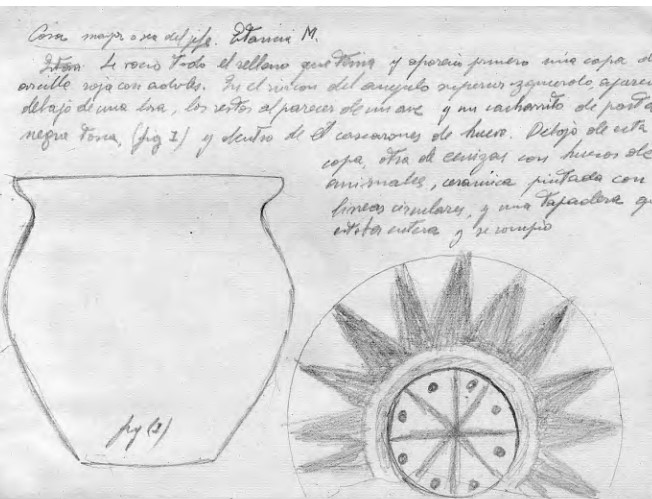 Casa mayor o sea del jefe. Estancia M.
Esta Se vació todo el relleno que tenía y apareció primero una capa de
arcilla roja con adobes. En el rincon del angulo superior izquierdo, aparecio
debajo de una losa, los restos al parecer de un ave y un cacharrito de pasta
negra tosca, (fig 1) y dentro de él cascarones de huevo. Debajo de esta
capa otra de cenizas con huesos de
animales, ceramica pintada con
lineas circulares, y una tapadera qu
estaba entera y se rompio
fig (1)